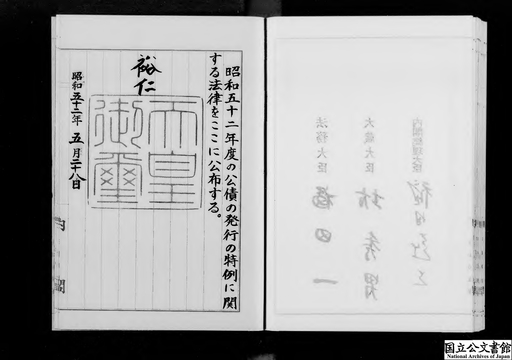 昭和五十二年度の公債の発行の特例に関
する法律をここに公布する。
裕仁
天皇
御璽
昭和五十二年五月二十八日
内閣
内閣総理大臣
大蔵大臣
法務大臣 福田一
国立公文書館
National Archives of Japan